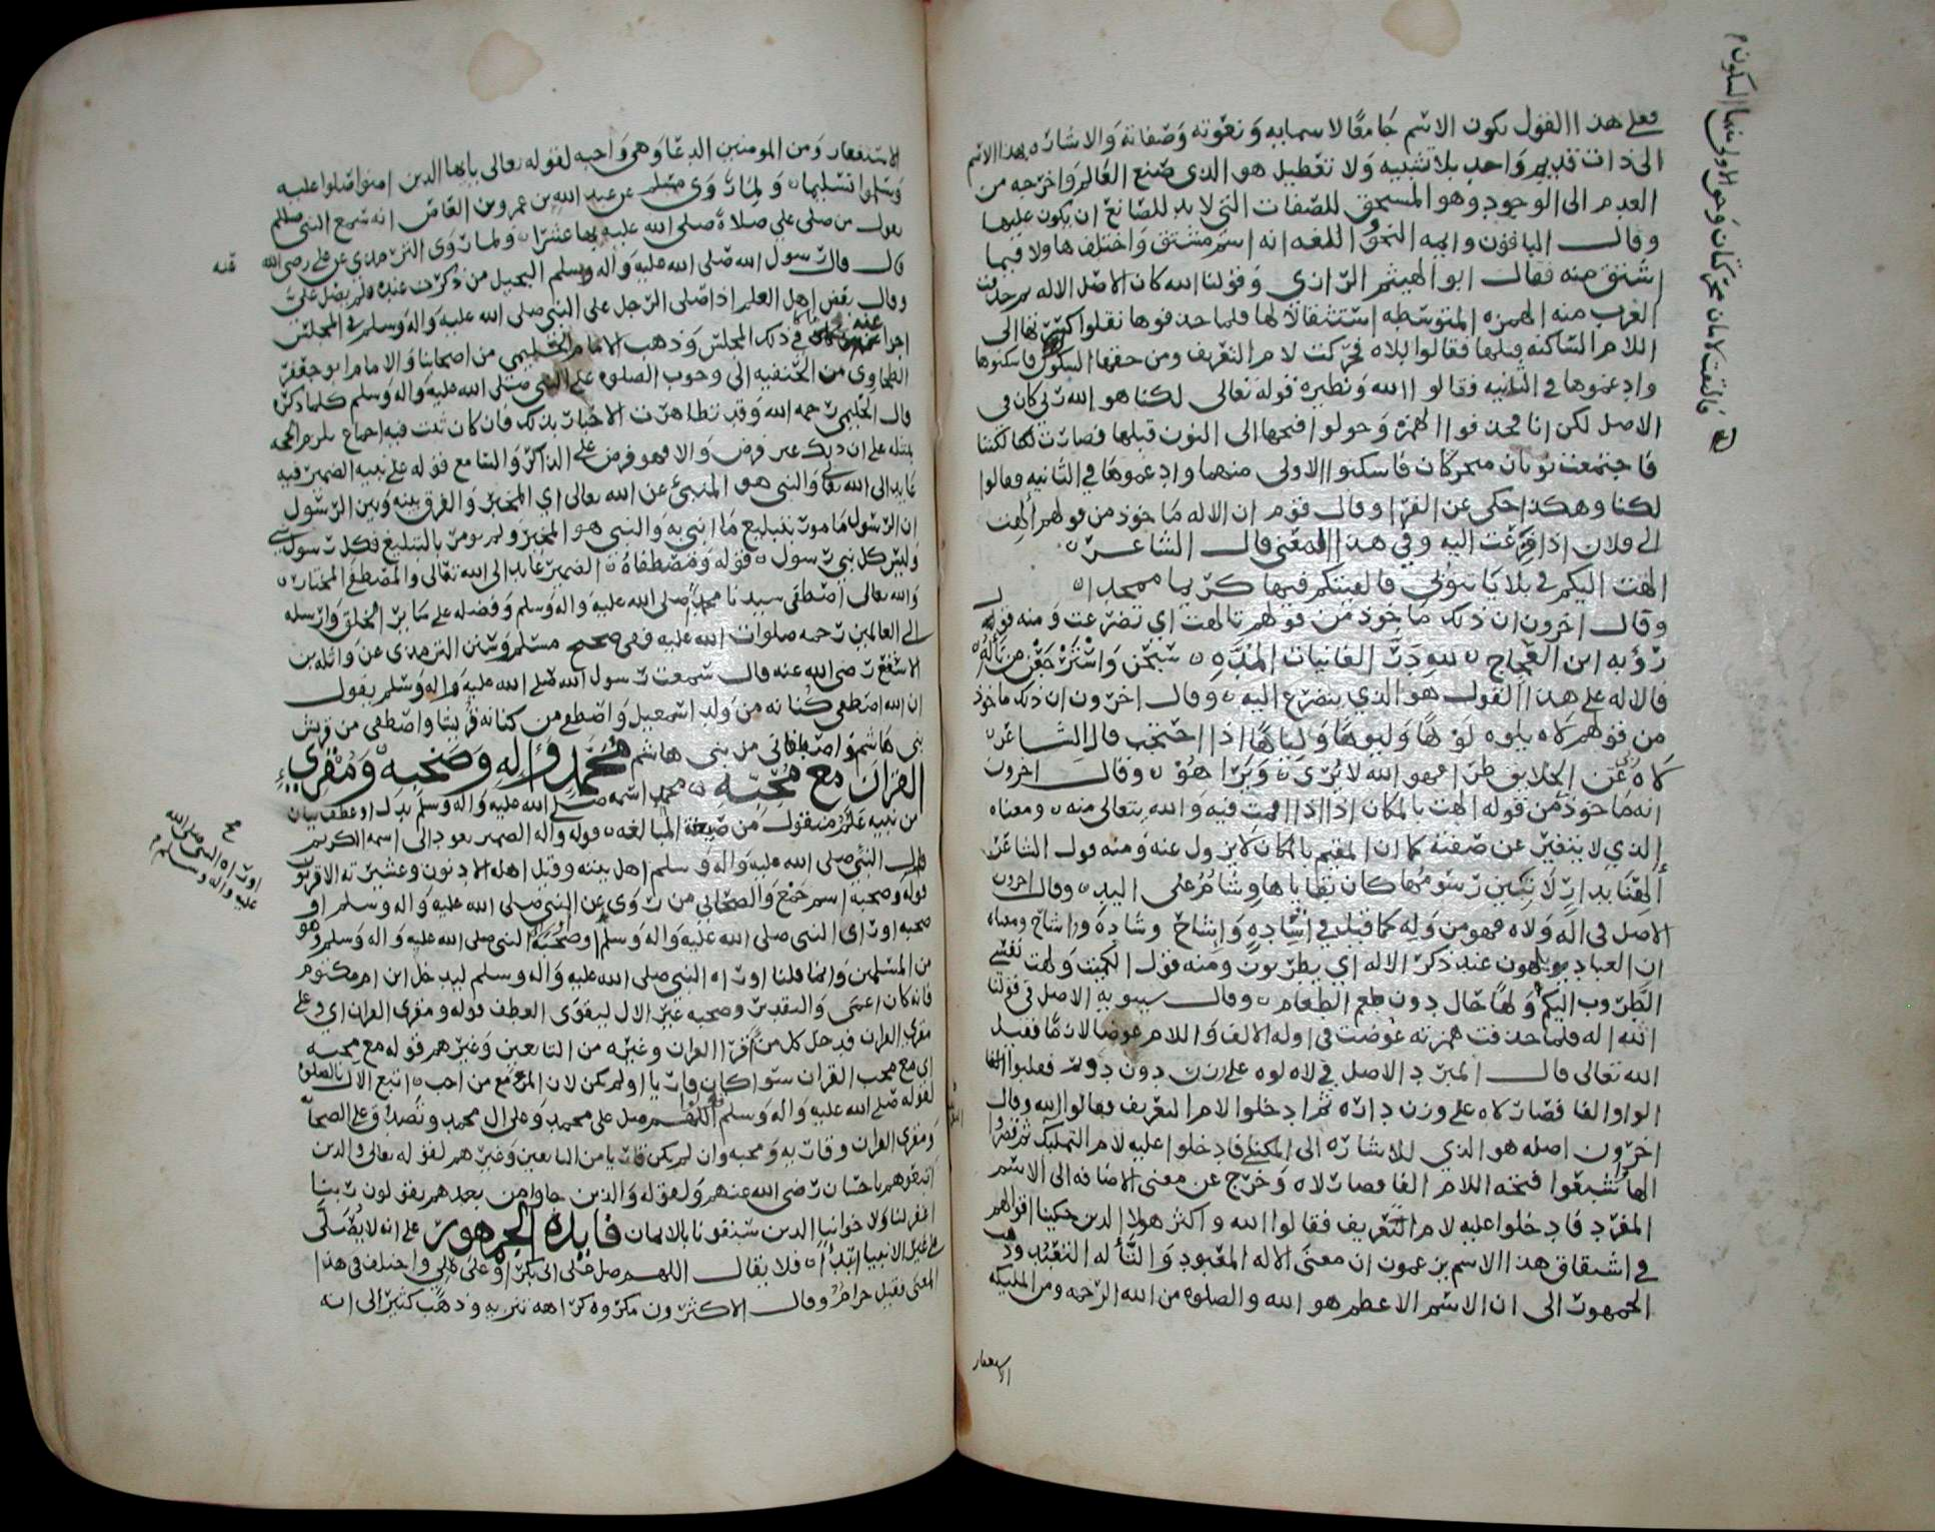 فعلى هذا القول يكون الاسم جامعًا لاسمايه ونعوته وصفاته والاشارة بهذا الاسم
الى ذات قديم واحد بلا تشبيه ولا تعطيل هو الذي صنع العالم واخرجه من
العدم الى الوجود وهو المستحق للصفات التي لا بد للصانع ان يكون عليها
وقال الباقون وايمه النحو اللغه انه اسم مشتق واختلفوا فيما
اشتق منه فقال ابو الهيثم الرازي وقولنا الله كان الاصل الاله ثم حذفت
العرب منه الهمزه المتوسطه استثقالا لها فلما حذفوها نقلوا كسرتها الى
اللام الساكنه قبلها فقالوا اللاه فحركت لام التعريف ومن حقها السكون فاسكنوها
وادغموها في الثانيه فقالوا الله ونظيره قوله تعالى لكنا هو الله ربي كان في
الاصل لكن انا فحذفوا الهمزه وحولوا فتحها الى النون قبلها فصارت لكننا
فاجتمعت نونان متحركان فاسكنوا الاولى منهما وادغموها في الثانيه وقالوا
لكنا وهكذا حكي عن الفرا وقال قوم ان الاله ماخوذ من قولهم الهت
الى فلان اذا فزعت اليه وفي هذا المعنى قال الشاعر
الهت اليكم في بلايا تنوبني فالفيتكم فيها كريما ممجدا
وقال اخرون ان ذلك ماخوذ من قولهم تالهت اي تضرعت ومنه قول
رؤبه ابن العجاج لله در الغانيات المدّه سبحن واسترجعن من تاله
فالاله على هذا القول هو الذي يتضرع اليه وقال اخرون ان ذلك ماخوذ
من قولهم لاه يلوه لوهًا وليوهًا ولياهًا اذا احتجب قال الشاعر
لاه عن الخلايق طرا فهو الله لا يرى ويرا هو وقال اخرون
انه ماخوذ من قوله الهت بالمكان اذا اقمت فيه والله يتعالى منه ومعناه
الذي لا يتغير عن صفته كما ان المقيم بالمكان لا يزول عنه ومنه قول الشاعر
الهنا بدار لا تبين رسومها كان بقاياها وشام على اليد وقال اخرون
الاصل في اله ولاه فهو من وله كما قيل في اساده واشاح وساده وواشاح ومعناه
ان العباد يولهون عند ذكر الاله اي يطربون ومنه قول الكميت ولهت نفسي
الطروب اليكم ولهًا حال دون طعم الطعام وقال سيبويه الاصل في قولنا
الله اله فلما حذفت همزته عوضت في اوله الالف واللام عوضا لازمًا فقيل
الله تعالى قال المبرد الاصل في لاه لوه على وزن دون دور فقلبوا
الواو الفا فصار لاه على وزن داره ثم ادخلوا لام التعريف فقالوا الله وقال
اخرون اصله هو الذي للاشاره الى المكنى فادخلوا عليه لام التمليك ثم قصروا
الها واشبعوا فتحه اللام الفا فصار لاه وخرج عن معنى الاضافه الى الاسم
المفرد فادخلوا عليه لام التعريف فقالوا الله واكثر هولا الذين حكينا اقوالهم
في اشتقاق هذا الاسم يزعمون ان معنى الاله المعبود والتاله التعبد وذهب
الجمهور الى ان الاسم الاعظم هو الله والصلوه من الله الرحمه ومن المليكه
الاستغفار
فالتقت لامان متحركتان وحق الاولى منها السكون
الاستغفار ومن المومنين الدعا وهي واجبه لقوله تعالى يايها الذين امنوا صلوا عليه
وسلموا تسليما ولما روى مسلم عن عبد الله بن عمرو بن العاص انه سمع النبي صلعم
يقول من صلى علي صلاة صلى الله عليه بها عشرا ولما روى الترمذي عن علي رضي الله عنه
قال قال رسول الله صلى الله عليه واله وسلم البخيل من ذكرت عنده فلم يصل علي
وقال بعض اهل العلم اذا صلى الرجل على النبي صلى الله عليه واله وسلم في المجلس
اجزا عنه ما كان في ذلك المجلس وذهب الامام الحليمي من اصحابنا والامام ابو جعفر
الطحاوي من الحنفيه الى وجوب الصلوه على النبي صلى الله عليه واله وسلم كلما ذكر
قال الحليمي رحمه الله وقد تظاهرت الاخبار بذلك فان كان ثبت فيه اجماع يلزم الحجه
بمثله على ان ذلك غير فرض والا فهو فرض على الذاكر والسامع قوله على نبيه الضمير فيه
عايد الى الله تعالى والنبي هو المنبئ عن الله تعالى اي المخبر والفرق بينه وبين الرسول
ان الرسول مامور بتبليغ ما انبي به والنبي هو المخبر ولم يومر بالتبليغ فكل رسول نبي
وليس كل نبي رسول قوله ومصطفاه الضمير عايد الى الله تعالى والمصطفى المختار
والله تعالى اصطفى سيدنا محمد صلى الله عليه واله وسلم وفضله على ساير الخلق وارسله
الى العالمين رحمه صلوات الله عليه ففي صحيح مسلم وسنن الترمذي عن واثله بن
الاسقع رضي الله عنه قال سمعت رسول الله صلى الله عليه واله وسلم يقول
ان الله اصطفى كنانه من ولد اسمعيل واصطفى من كنانه قريشا واصطفى من قريش
بني هاشم واصطفاني من بني هاشم محمد واله وصحبه ومقرئ
القران مع محبه محمد اسمه صلى الله عليه واله وسلم بدل او عطف بيان
من نبيه علم منقول من صيغة المبالغه قوله واله الضمير يعود الى اسمه الكريم
قال النبي صلى الله عليه واله وسلم اهل بيته وقيل اهله الادنون وعشيرته الاقربون
قوله وصحبه اسم جمع والصحابي من روى عن النبي صلى الله عليه واله وسلم او
صحبه او راى النبي صلى الله عليه واله وسلم او صحبه النبي صلى الله عليه واله وسلم وهو
من المسلمين وانما قلنا او راه النبي صلى الله عليه واله وسلم ليدخل ابن ام مكتوم
فانه كان اعمى والتقدير وصحبه غير الال ليقوى العطف قوله ومقرئ القران اي وعلى
مقرئ القران فدخل كل من اقرا القران وغيره من التابعين وغيرهم قوله مع محبه
اي مع محب القران سوا كان قاريا او لم يكن لان المرء مع من احب اتبع الال بالصلوه
لقوله صلى الله عليه واله وسلم قولوا اللهم صل على محمد وعلى ال محمد وتصدق على الصحابه
ومقرئ القران وقاريه ومحبه وان لم يكن قاريا من التابعين وغيرهم لقوله تعالى والذين
اتبعوهم باحسان رضي الله عنهم ولقوله والذين جاوا من بعدهم يقولون ربنا
اغفر لنا ولاخواننا الذين سبقونا بالايمان فايده الجمهور على انه لا يصلى
على غير الانبيا ابتدا فلا يقال اللهم صل على ابي بكر او على علي واختلف في هذا
المعنى فقيل حرام وقال الاكثرون مكروه كراهه تنزيه وذهب كثير الى انه
صح
او راه النبي صلى الله
عليه واله وسلم